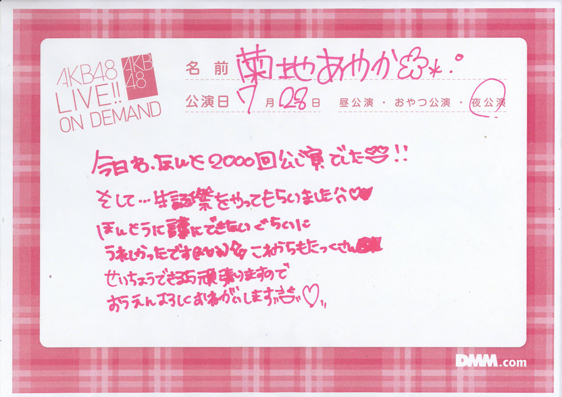 AKB48
LIVE!!
ON DEMAND
AKB
48
名 前 菊地あやか
公演日 7 月 28 日 昼公演 ・ おやつ公演 ・ 夜公演
今日わ、なんと2000回公演でした!!
そして…生誕祭をやってもらいました
ほんとうに言葉にできないぐらいに
うれしかったです これからもたっくさん
せいちょうできるよう頑張りますので
おうえんよろしくおねがいします
DMM.com